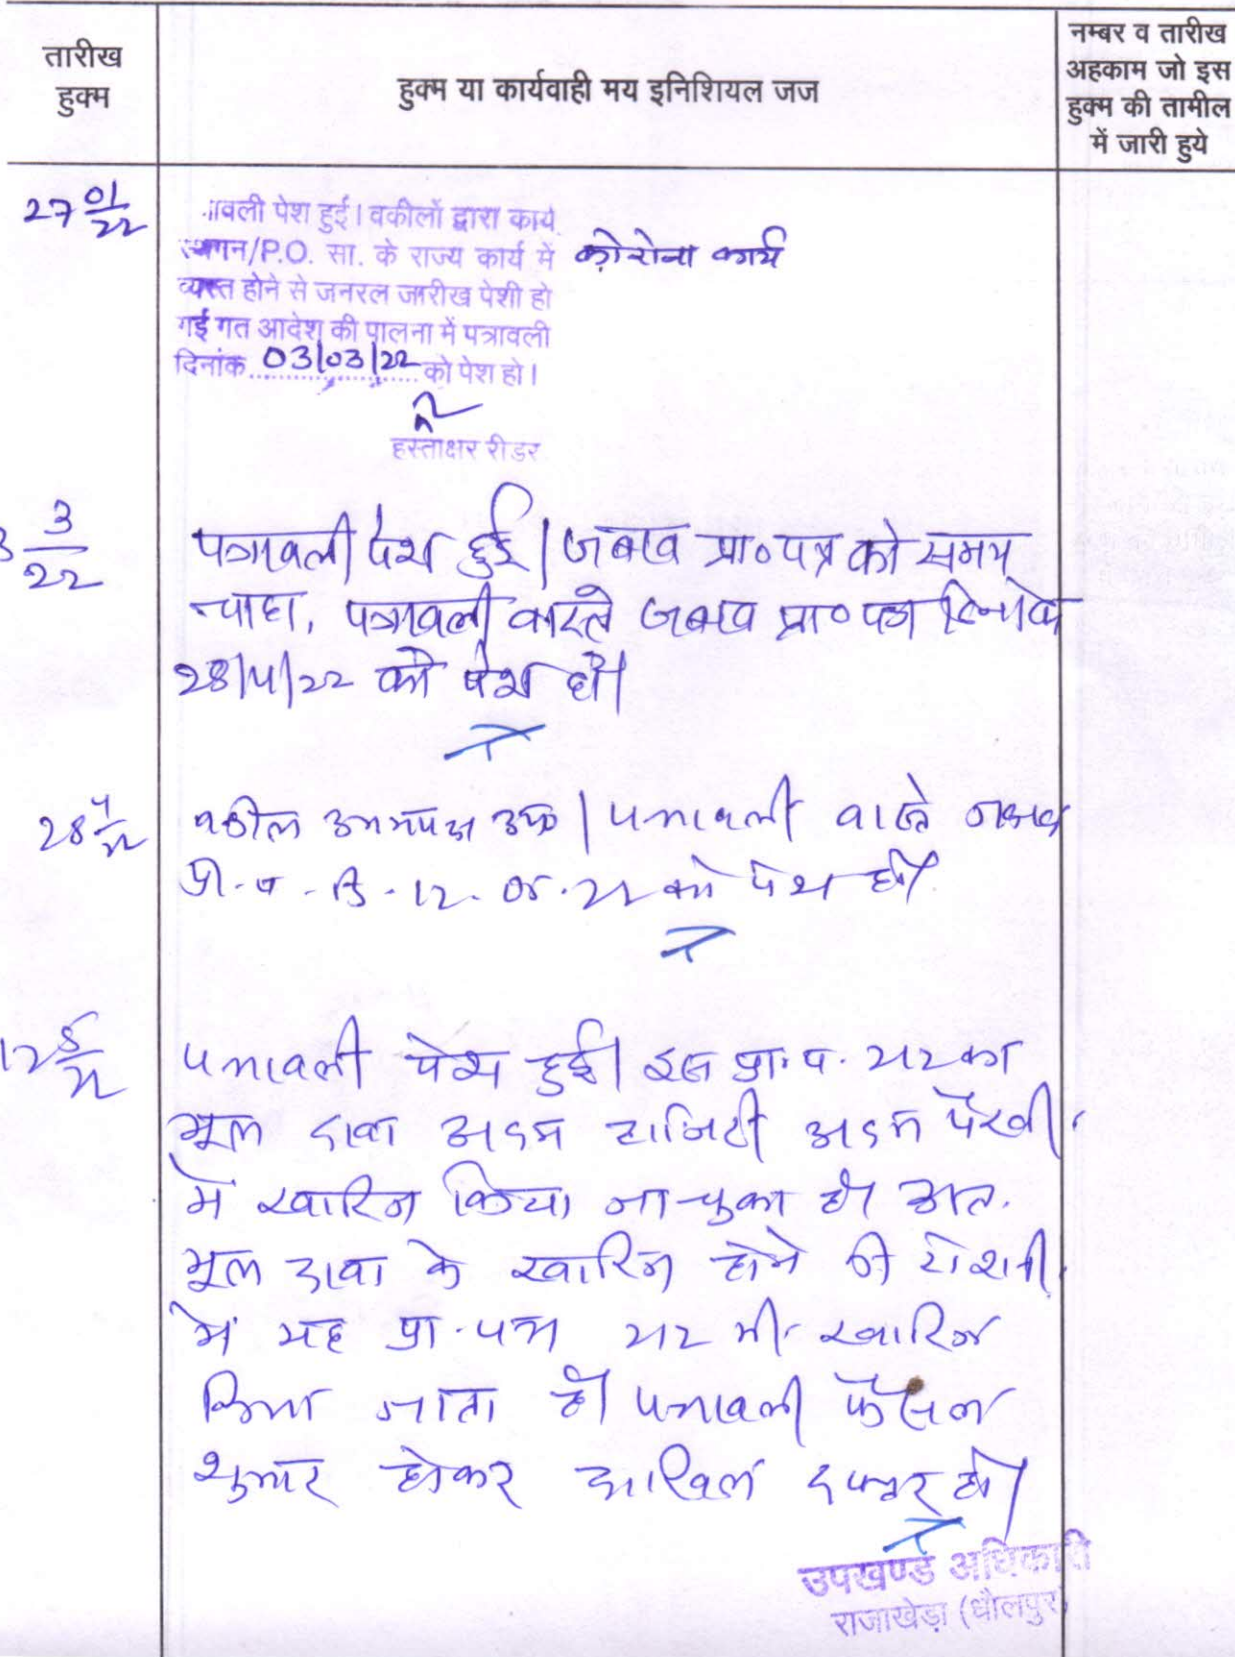 तारीख
हुक्म
हुक्म या कार्यवाही मय इनिशियल जज
नम्बर व तारीख
अहकाम जो इस
हुक्म की तामील
में जारी हुये
27 01/22
ावली पेश हुई। वकीलों द्वारा कार्य
स्थगन/P.O. सा. के राज्य कार्य में कोरोना कार्य
व्यस्त होने से जनरल तारीख पेशी हो
गई गत आदेश की पालना में पत्रावली
दिनांक 03/03/22 को पेश हो।
हस्ताक्षर रीडर
3 3/22
पत्रावली पेश हुई। जबाव प्रा०पत्र को समय
चाहा, पत्रावली वास्ते जबाव प्रा०पत्र दिनांक
28/4/22 को पेश हो।
28 4/22
वकील उभयपक्ष उप०। पत्रावली वास्ते जबाव
प्रा.प. दि. 12.05.22 को पेश हो।
12 5/22
पत्रावली पेश हुई। इस प्रा.प. का
मूल दावा अदम हाजिरी अदम पैरवी
में खारिज किया जा चुका है। अतः
मूल दावा के खारिज होने की रोशनी
में यह प्रा.पत्र भी खारिज
किया जाता है। पत्रावली फैसल
शुमार होकर दाखिल दफ्तर हो।
उपखण्ड अधिकारी
राजाखेड़ा (धौलपुर)